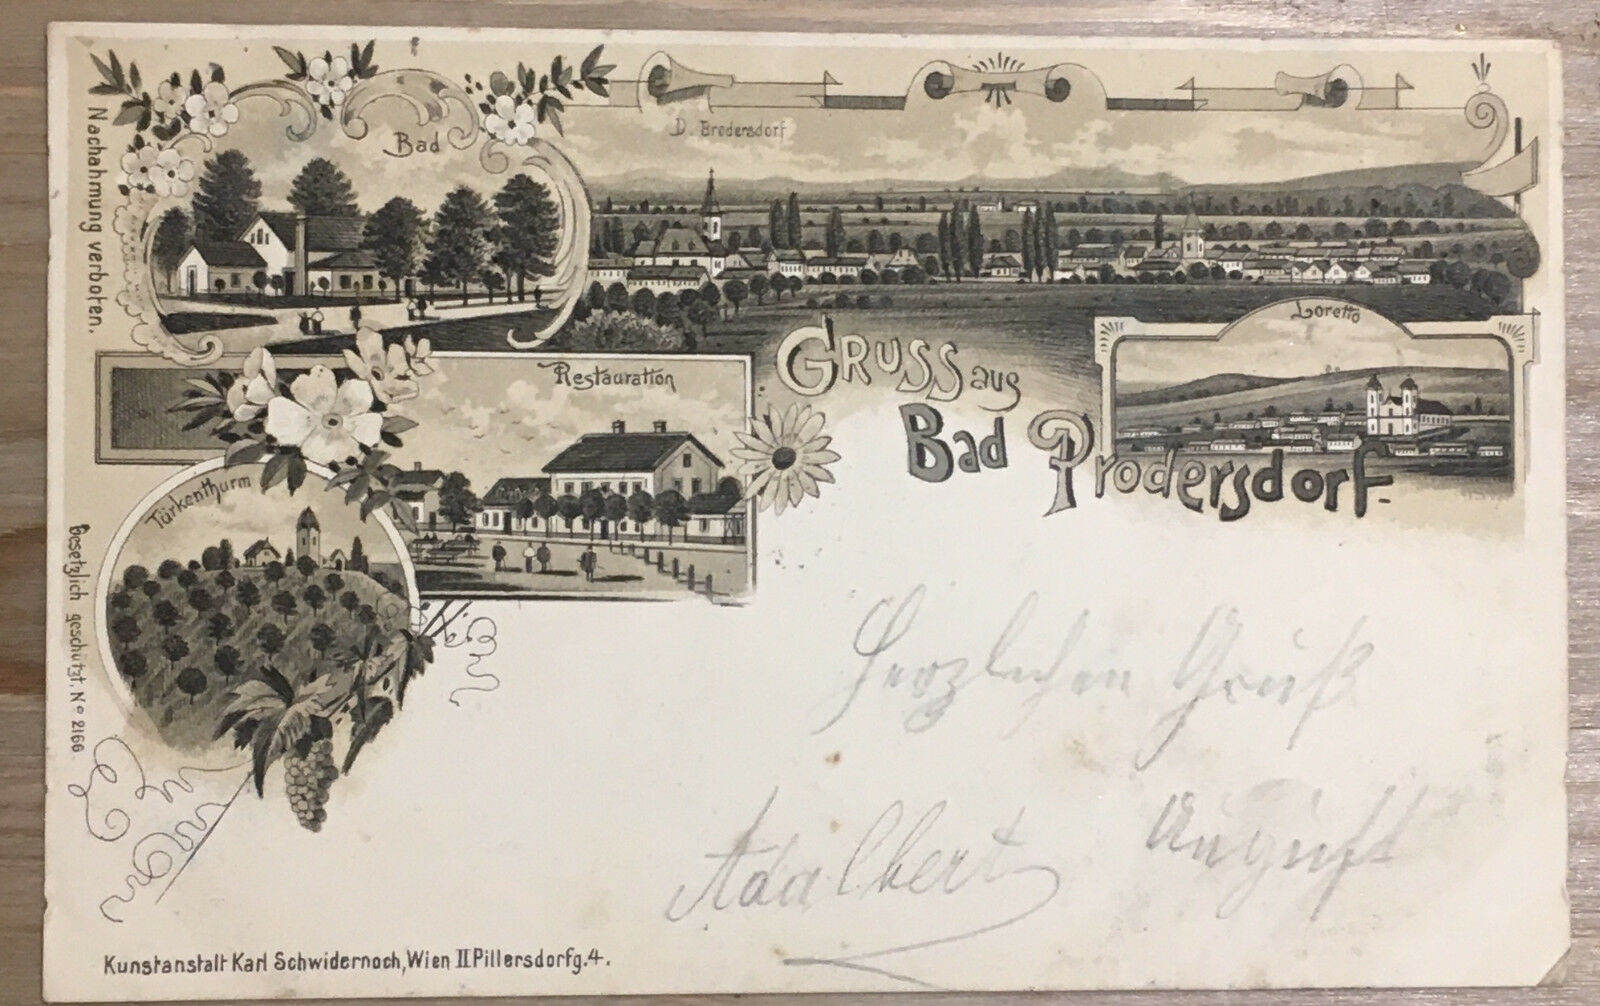 Nachahmung verboten.
Bad
D. Brodersdorf
Restauration
GRUSS aus
Bad Prodersdorf
Loretto
Türkenthurm
Gesetzlich geschützt. No 2166.
Herzlichen Gruß
Adalbert August
Kunstanstalt Karl Schwidernoch, Wien II Pillersdorfg. 4.